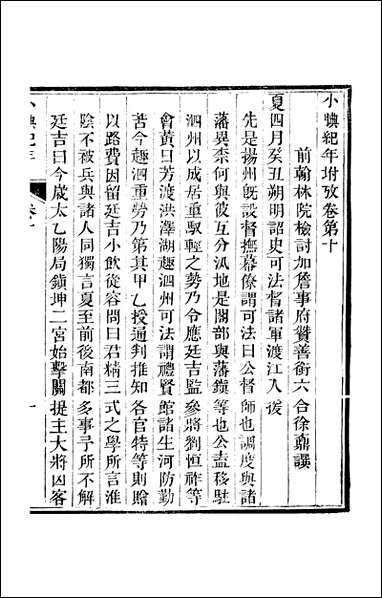 小腆紀年坿攷卷第十
前翰林院檢討加詹事府贊善銜六合徐鼒譔
夏四月癸丑朔明詔史可法督諸軍渡江入援
先是揚州旣設督撫幕僚謂可法曰公督師也調度與諸
藩異柰何與彼互分汎地是閣部與藩鎭等也公盍移駐
泗州以成居重馭輕之勢乃令應廷吉監參將劉恒祚等
會黃日芳渡洪澤湖趣泗州可法謂禮賢館諸生河防勤
苦今趣泗重勢乃第其甲乙授通判推知各官特等則贈
以路費因留廷吉小飲從容問曰君精三式之學所言淮
陰不被兵與諸人同獨言夏至前後南都多事予所不解
廷吉曰今歲太乙陽局鎭坤二宮始擊關提主大將囟客
小腆紀年
卷十
一